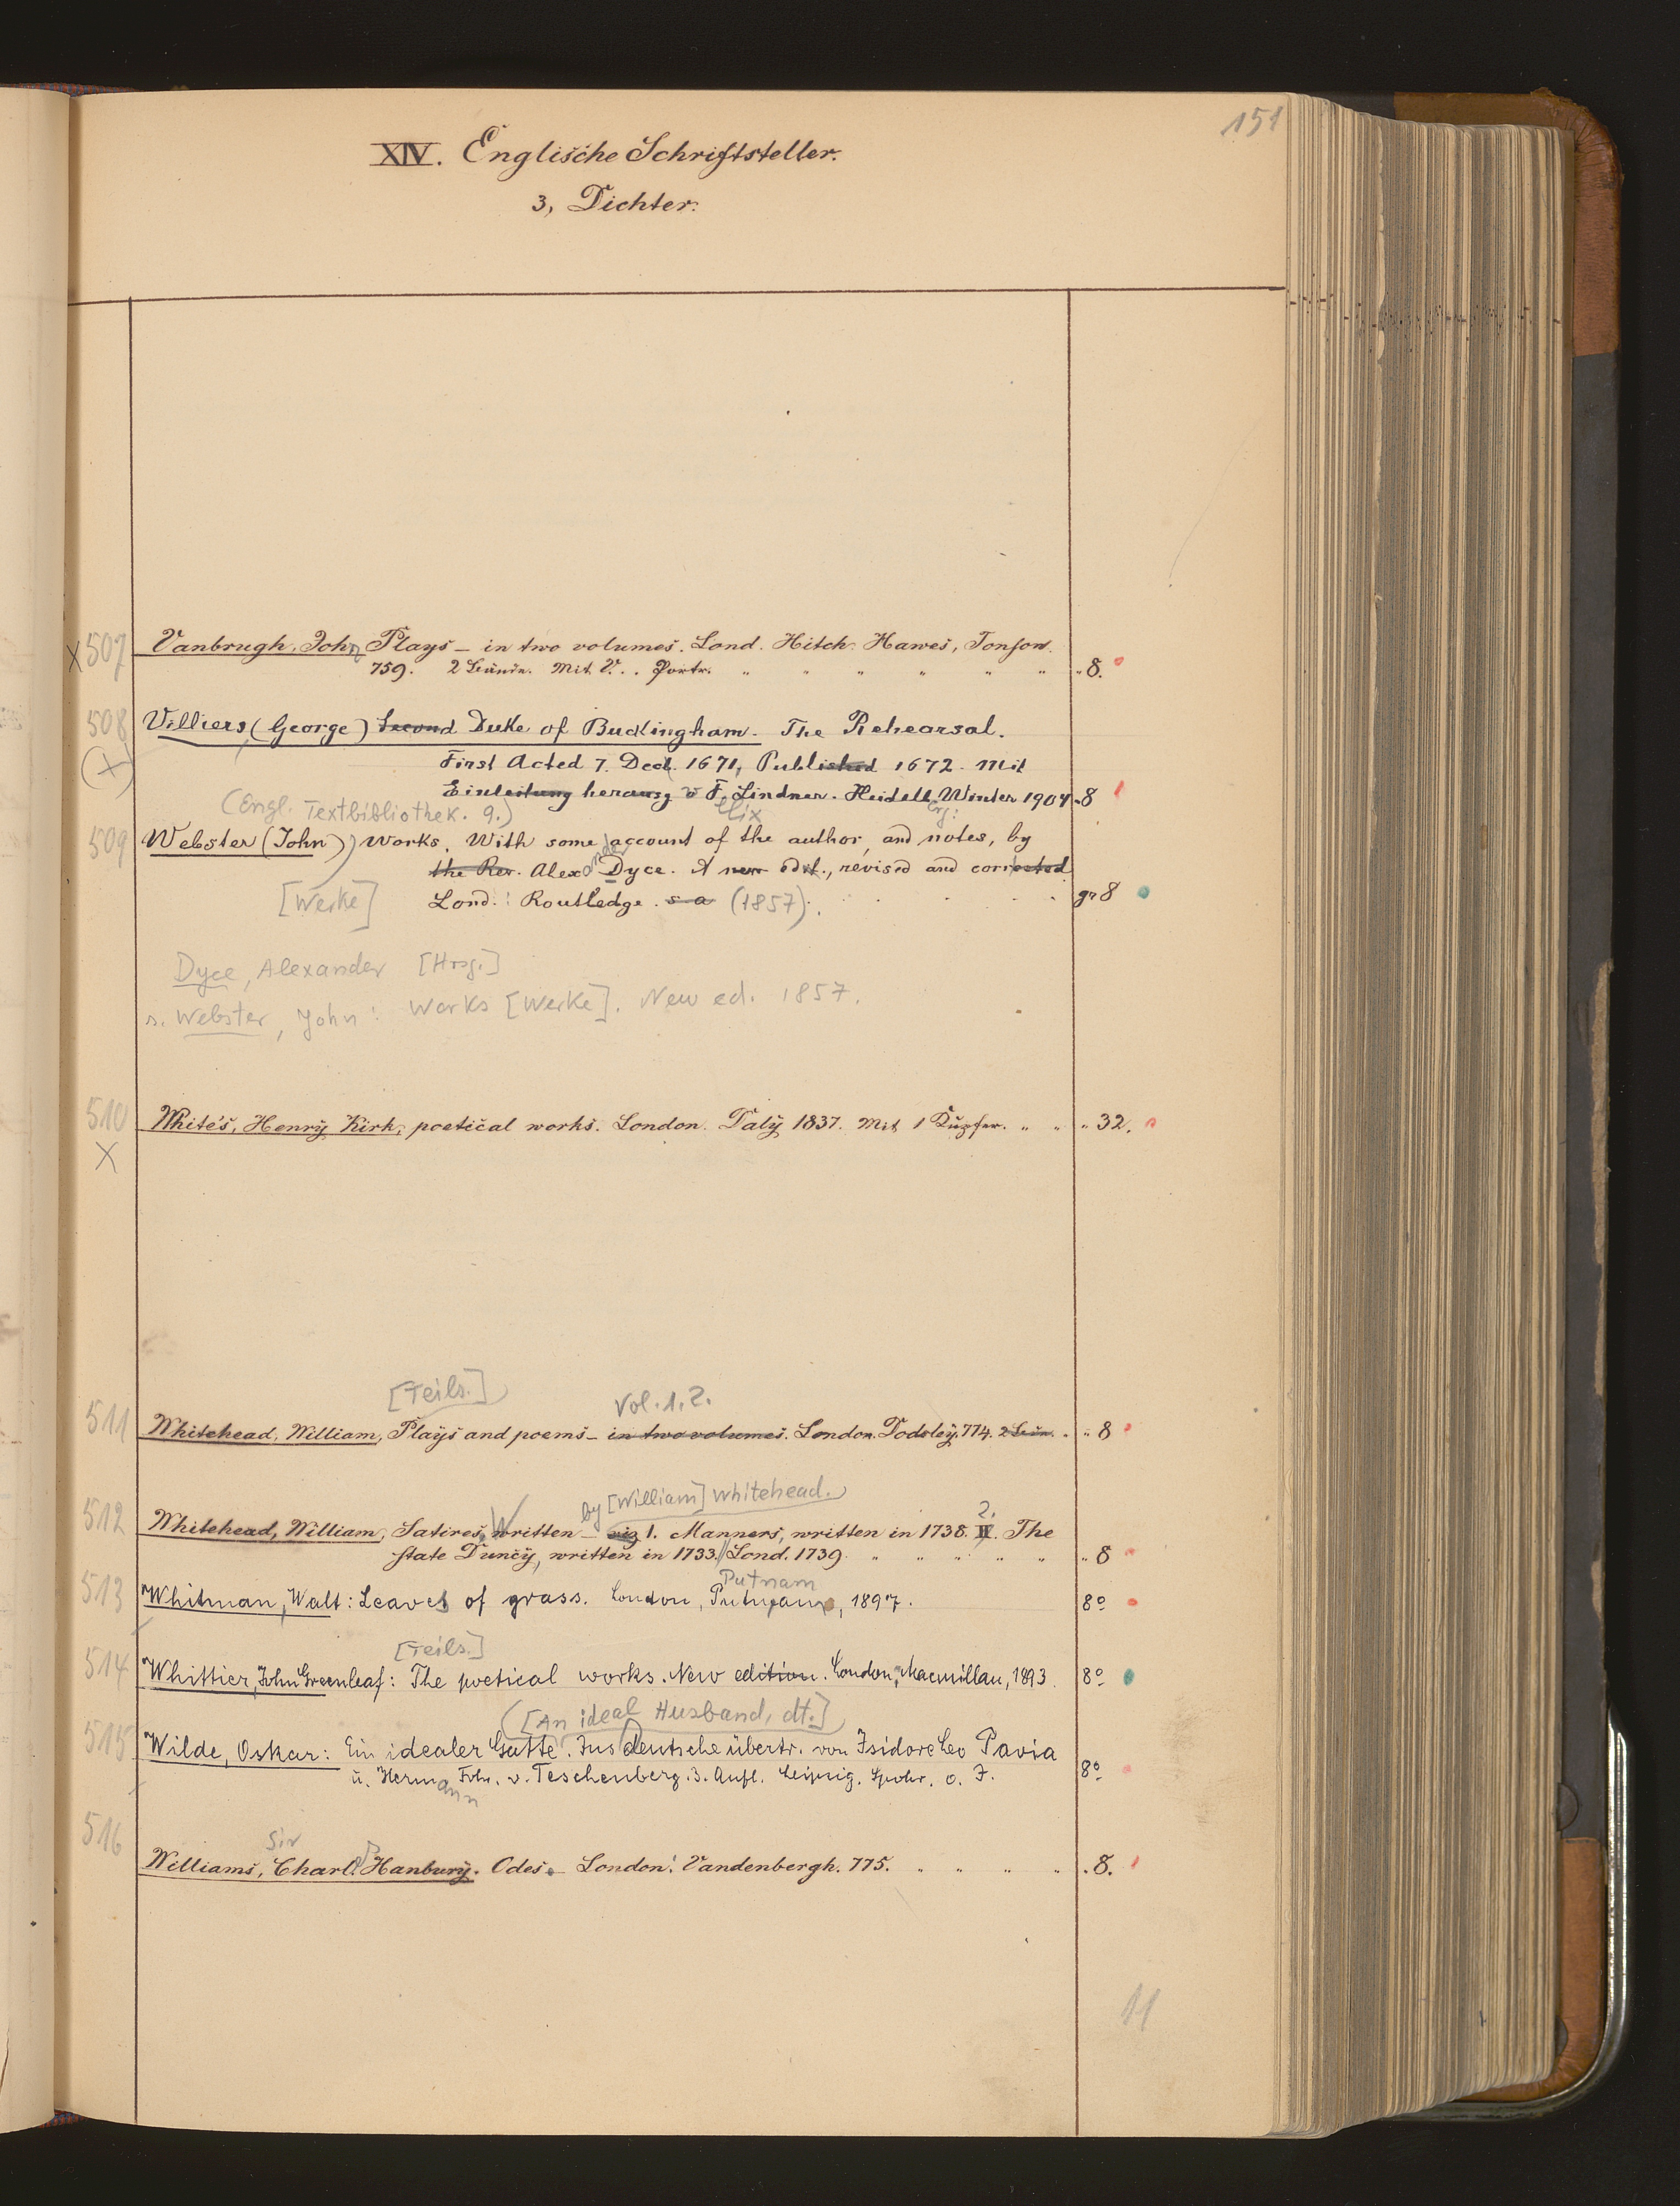 151
XIV. Englische Schriftsteller.
3, Dichter.
X 507 Vanbrugh, John Plays – in two volumes. Lond. Hitch. Hawes, Tonson.
759. 2 Bände. Mit V. . Portr. " " " " " " " 8.
508 Villiers, (George) Second Duke of Buckingham. The Rehearsal.
(X) First Acted 7. Dec. 1671, Published 1672. Mit
Einleitung herausg v F. Lindner. Heidelb. Winter 1904. 8
(Engl. Textbibliothek. 9.) elix
509 Webster (John) Works. With some account of the author, and notes, by
the Rev. Alexander Dyce. A new edit., revised and corrected
[Werke] Lond.: Routledge. s a (1857). gr 8
Dyce, Alexander [Hrsg.]
s. Webster, John: Works [Werke]. New ed. 1857.
510 White's, Henry Kirk, poetical works. London. Daly 1837. Mit 1 Kupfer. " " " 32.
X
[Teils.] Vol. 1, 2.
511 Whitehead, William, Plays and poems – in two volumes. London. Dodsley. 774. 2 Bän. " " 8
by [William] Whitehead. 2.
512 Whitehead, William, Satires, Written – viz 1. Manners, written in 1738. II. The
state Duncy, written in 1733. // Lond. 1739. " " " " " " 8
Putnam
513 Whitman, Walt: Leaves of grass. London, Putnam, 1897. 8º
[Teils.]
514 Whittier, John Greenleaf: The poetical works. New edition. London, Macmillan, 1893. 8º
([An ideal Husband, dt.])
515 Wilde, Oskar: Ein idealer Gatte. Ins Deutsche übertr. von Isidore Leo Pavia
u. Hermann Frhr. v. Teschenberg. 3. Aufl. Leipzig. Spohr. o. J. 8º
Sir
516 Williams, Charl. Hanbury. Odes. – London: Vandenbergh. 775. " " " " . 8.
11